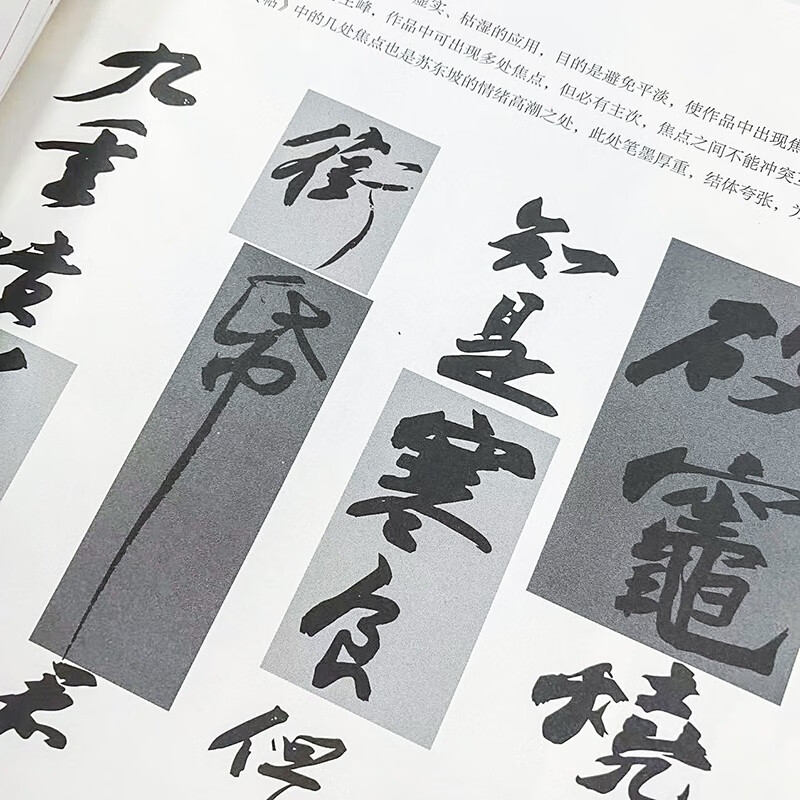 虚实、枯湿的应用，目的是避免平淡，使作品中出现焦
主峰，作品中可出现多处焦点，但必有主次，焦点之间不能冲突
帖》中的几处焦点也是苏东坡的情绪高潮之处，此处笔墨厚重，结体夸张，为
破竈燒
知是寒食但
銜帋君
九重墳